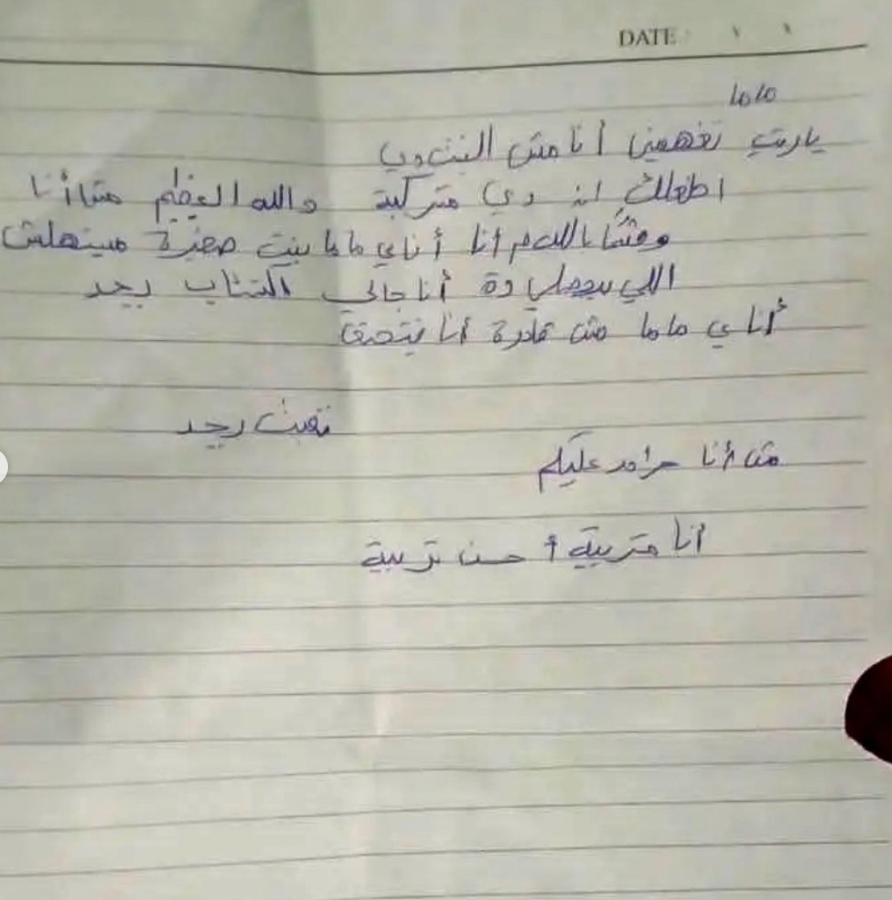 DATE
ماما
ياريت تفهميني أنا مش البنت دي
دي متركبة والله العظيم مش أنا
وقسماً بالله م أنا أنا ي ماما بنت صغيرة ميستهلش
اللي بيحصلي دة أنا جالي اكتئاب بجد
أنا ي ماما مش قادرة أنا بتخنق
تعبت بجد
مش أنا حرام عليكم
أنا متربية أحسن تربية